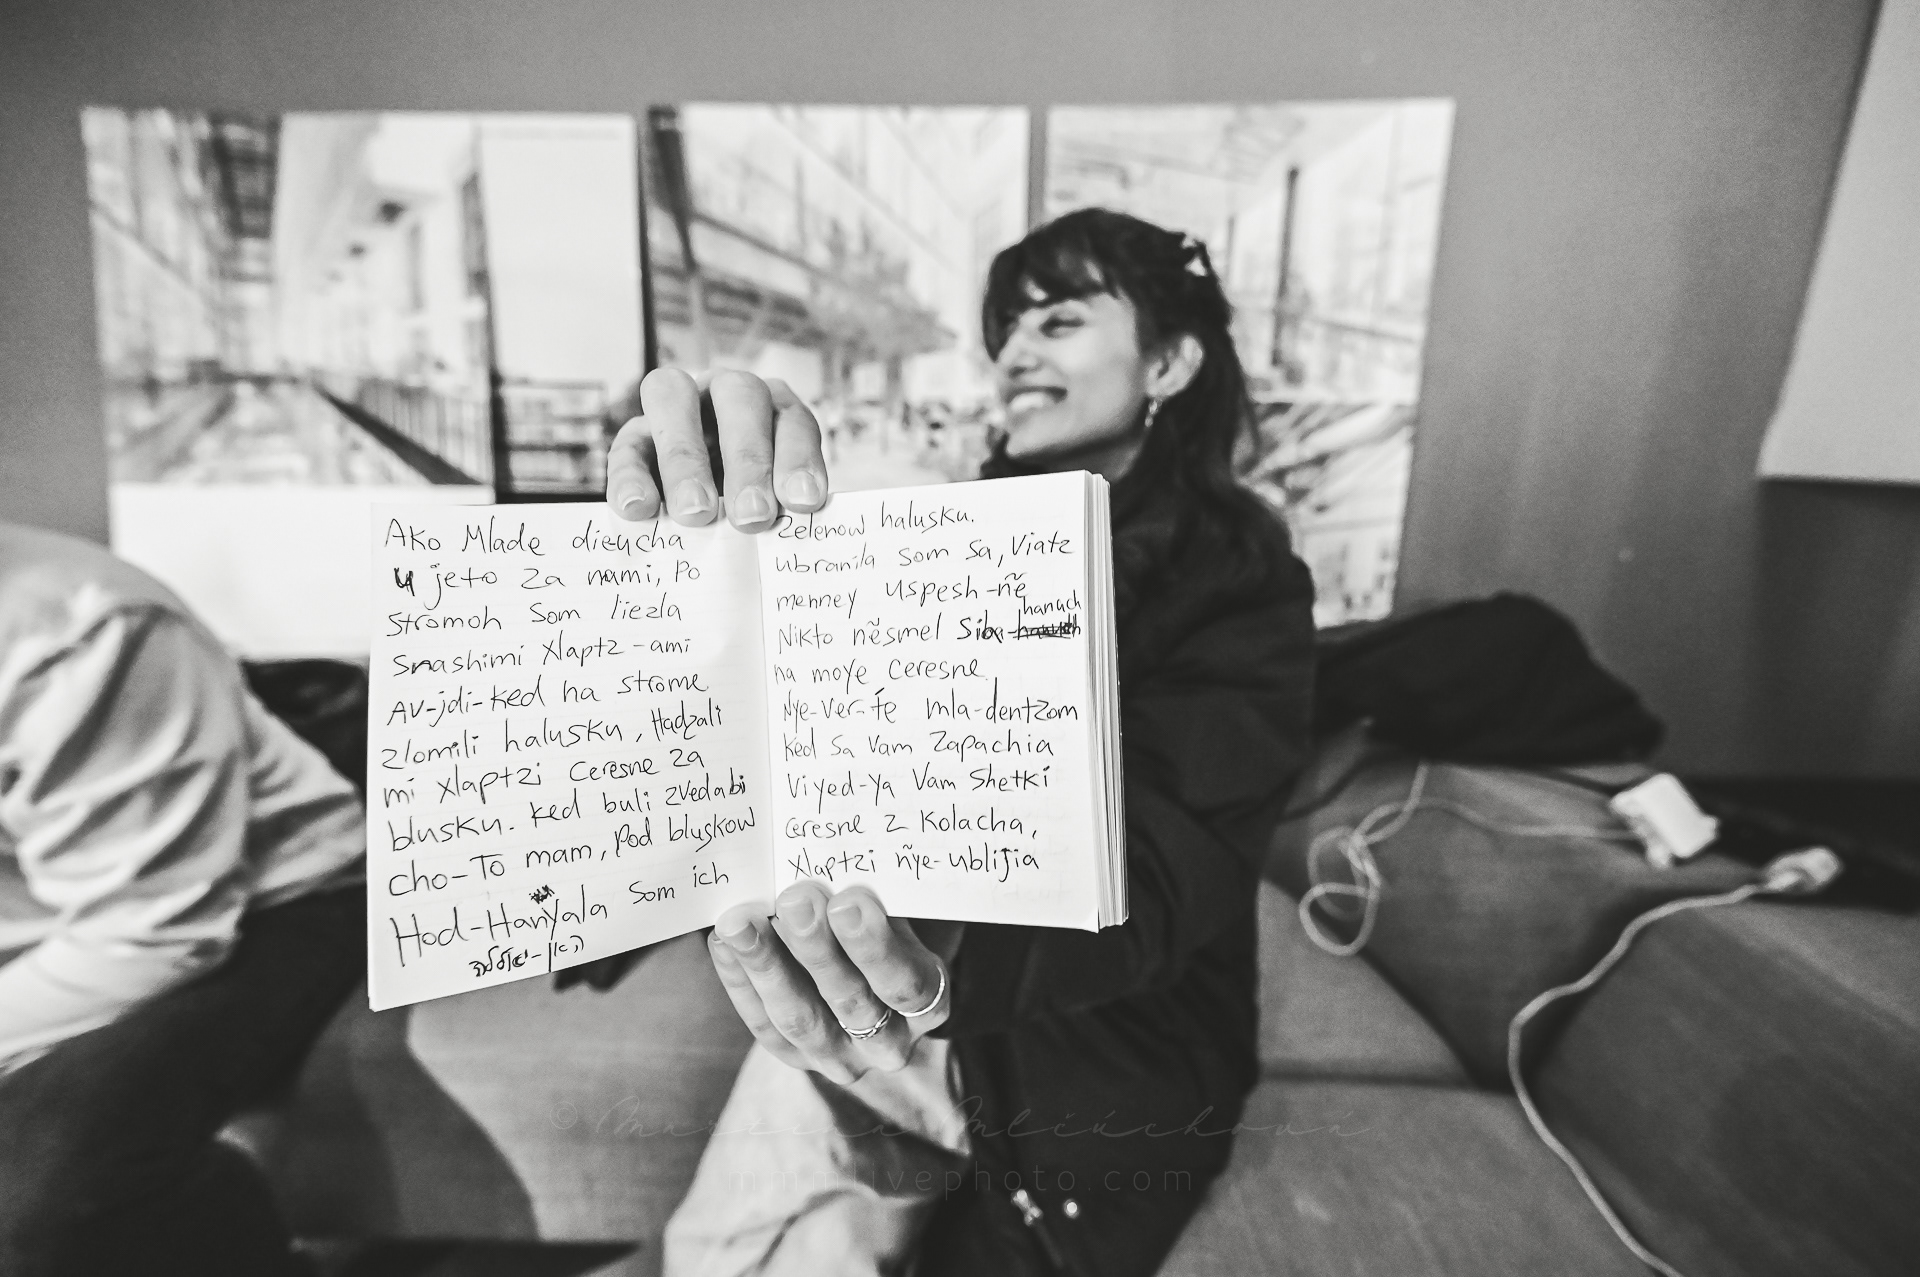 Ako Mlade dieucha
u jeto za nami, Po
stromoh som liezla
snashimi xlaptz-ami
Av-jdi-ked na strome
zlomili halusku, Hadzali
mi xlaptzi ceresne za
blusku. ked buli zvedabi
cho-To mam, pod bluskow
Hod-Hanyala som ich
zelenow halusku.
ubranila som sa, viatz
menney uspesh-ñe
Nikto něsmel siba-hanach
na moye ceresne
Nye-ver-te mla-dentzom
ked sa vam zapachia
viyed-ya vam shetki
ceresne z kolacha,
xlaptzi ñye-ublijia
© Martina Mlčúchová
mmmlivephoto.com